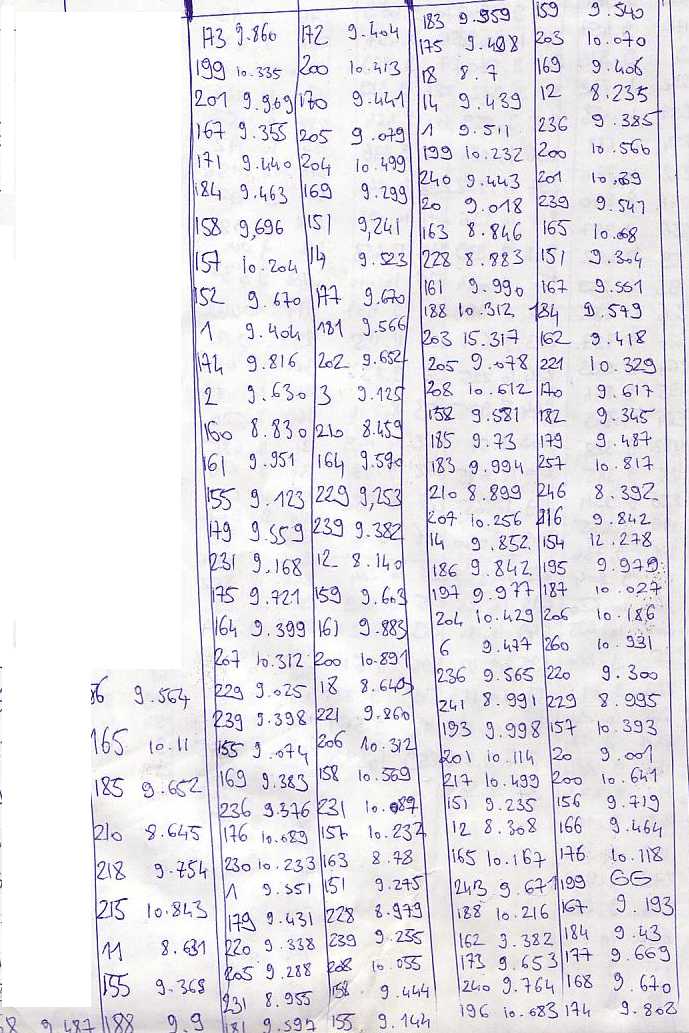 173 9.860
199 10.335
201 9.969
167 9.355
171 9.440
184 9.463
158 9,696
157 10.204
152 9.670
1 9.404
174 9.816
2 9.630
160 8.830
161 9.951
155 9.123
179 9.559
231 9.168
175 9.721
164 9.399
207 10.312
229 9.025
239 9.398
155 9.074
169 9.383
236 9.376
176 10.089
230 10.233
1 9.551
179 9.431
220 9.338
205 9.288
231 8.955
181 9.597
172 9.404
200 10.413
170 9.441
205 9.079
204 10.499
169 9.299
151 9,241
14 9.523
177 9.670
181 9.566
202 9.652
3 9.125
210 8.459
164 9.590
229 9,253
239 9.382
12 8.140
159 9.603
161 9.883
200 10.891
18 8.640
221 9.860
206 10.312
158 10.569
231 10.087
157 10.237
163 8.78
151 9.275
228 8.979
239 9.255
208 10.055
158 9.444
155 9.144
183 9.959
175 9.498
18 8.7
14 9.439
1 9.511
199 10.232
240 9.443
20 9.018
163 8.846
228 8.883
161 9.990
188 10.312
203 15.317
205 9.078
208 10.612
158 9.581
185 9.73
183 9.994
210 8.899
207 10.256
14 9.852
186 9.842
197 9.977
204 10.429
6 9.477
236 9.565
241 8.991
193 9.998
201 10.114
217 10.499
151 9.235
12 8.308
165 10.167
243 9.671
188 10.216
162 9.382
173 9.653
240 9.764
196 10.083
159 9.540
203 10.070
169 9.406
12 8.235
236 9.385
200 10.560
201 10.39
239 9.547
165 10.08
151 9.304
167 9.551
184 9.579
162 9.418
221 10.329
170 9.617
182 9.345
179 9.487
257 10.817
246 8.392
216 9.842
154 12.278
195 9.979
187 10.027
206 10.186
260 10.931
220 9.300
229 8.995
157 10.393
20 9.001
200 10.641
156 9.719
166 9.464
176 10.118
199 GG
167 9.193
184 9.43
177 9.669
168 9.670
174 9.802
9.564
165 10.11
185 9.652
210 8.645
218 9.754
215 10.843
11 8.631
155 9.368
188 9.9
9.487